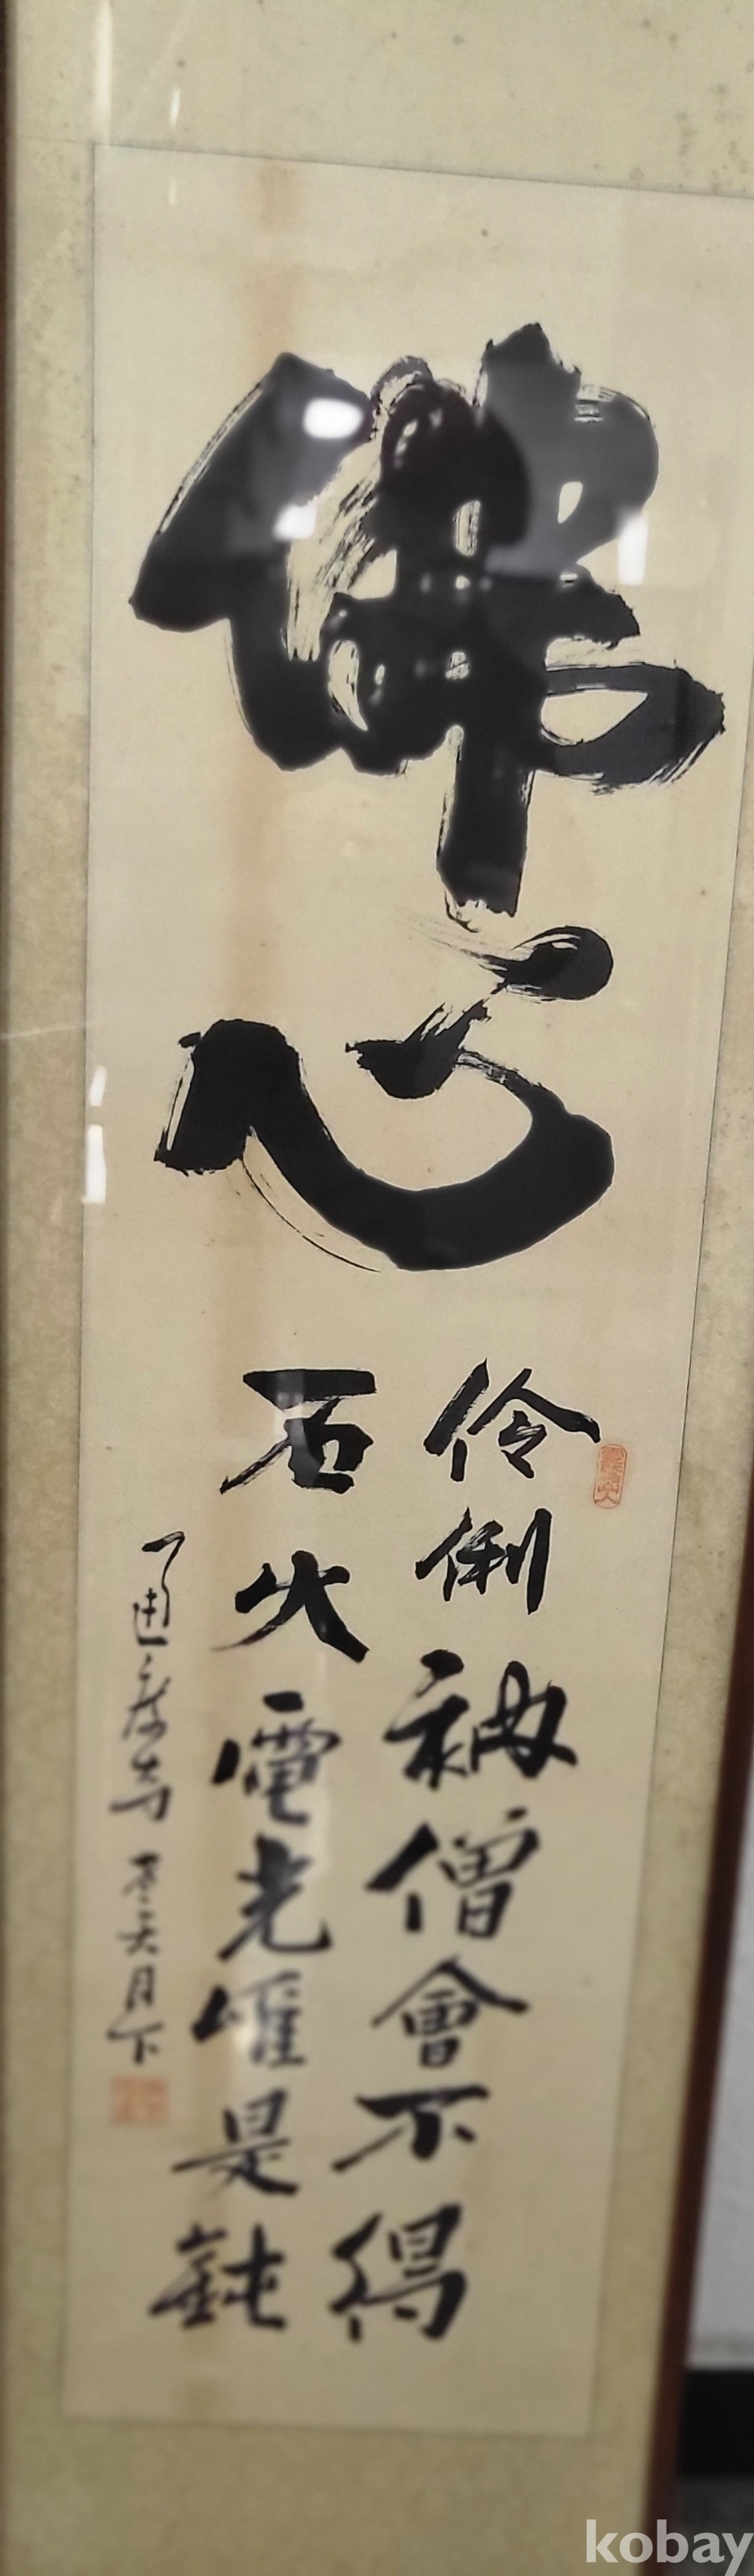 佛心
伶俐衲僧會不得
石火電光唯是鈍
月下
kobay